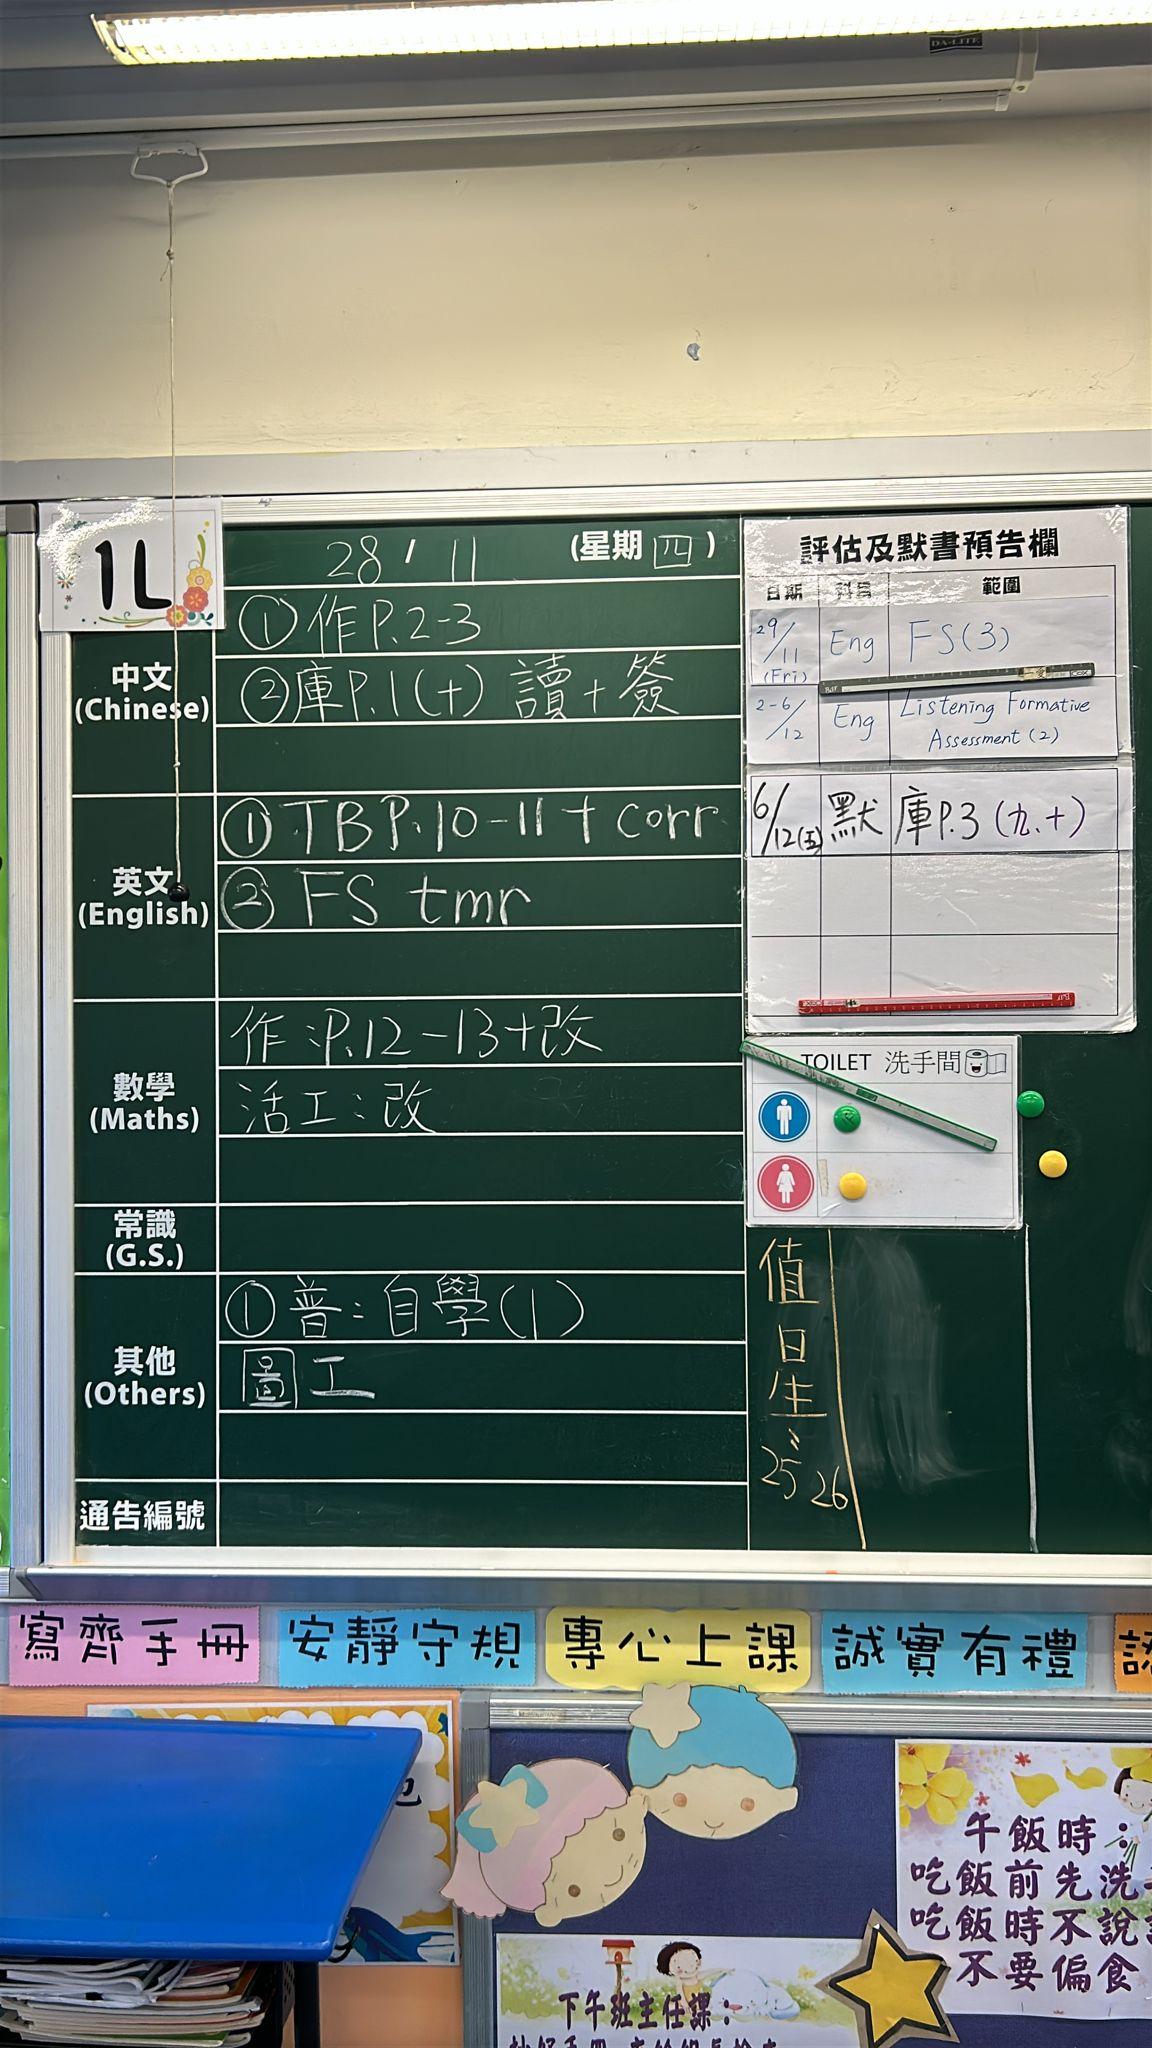 DA-LITE
1L
28 / 11 (星期四)
中文
(Chinese)
①作P.2-3
②庫P.1(十) 讀+簽
英文
(English)
① TB P.10-11 + corr
② FS tmr
數學
(Maths)
作:P.12-13+改
活工:改
常識
(G.S.)
其他
(Others)
①普:自學(1)
圖工
通告編號
評估及默書預告欄
日期 科目 範圍
29/11 (Fri) Eng FS(3)
2-6/12 Eng Listening Formative
Assessment (2)
6/12(五) 默 庫P.3 (九.十)
TOILET 洗手間
值
日
生
25 26
寫齊手冊 安靜守規 專心上課 誠實有禮
午飯時:
吃飯前先洗
吃飯時不說
不要偏食
下午班主任課: